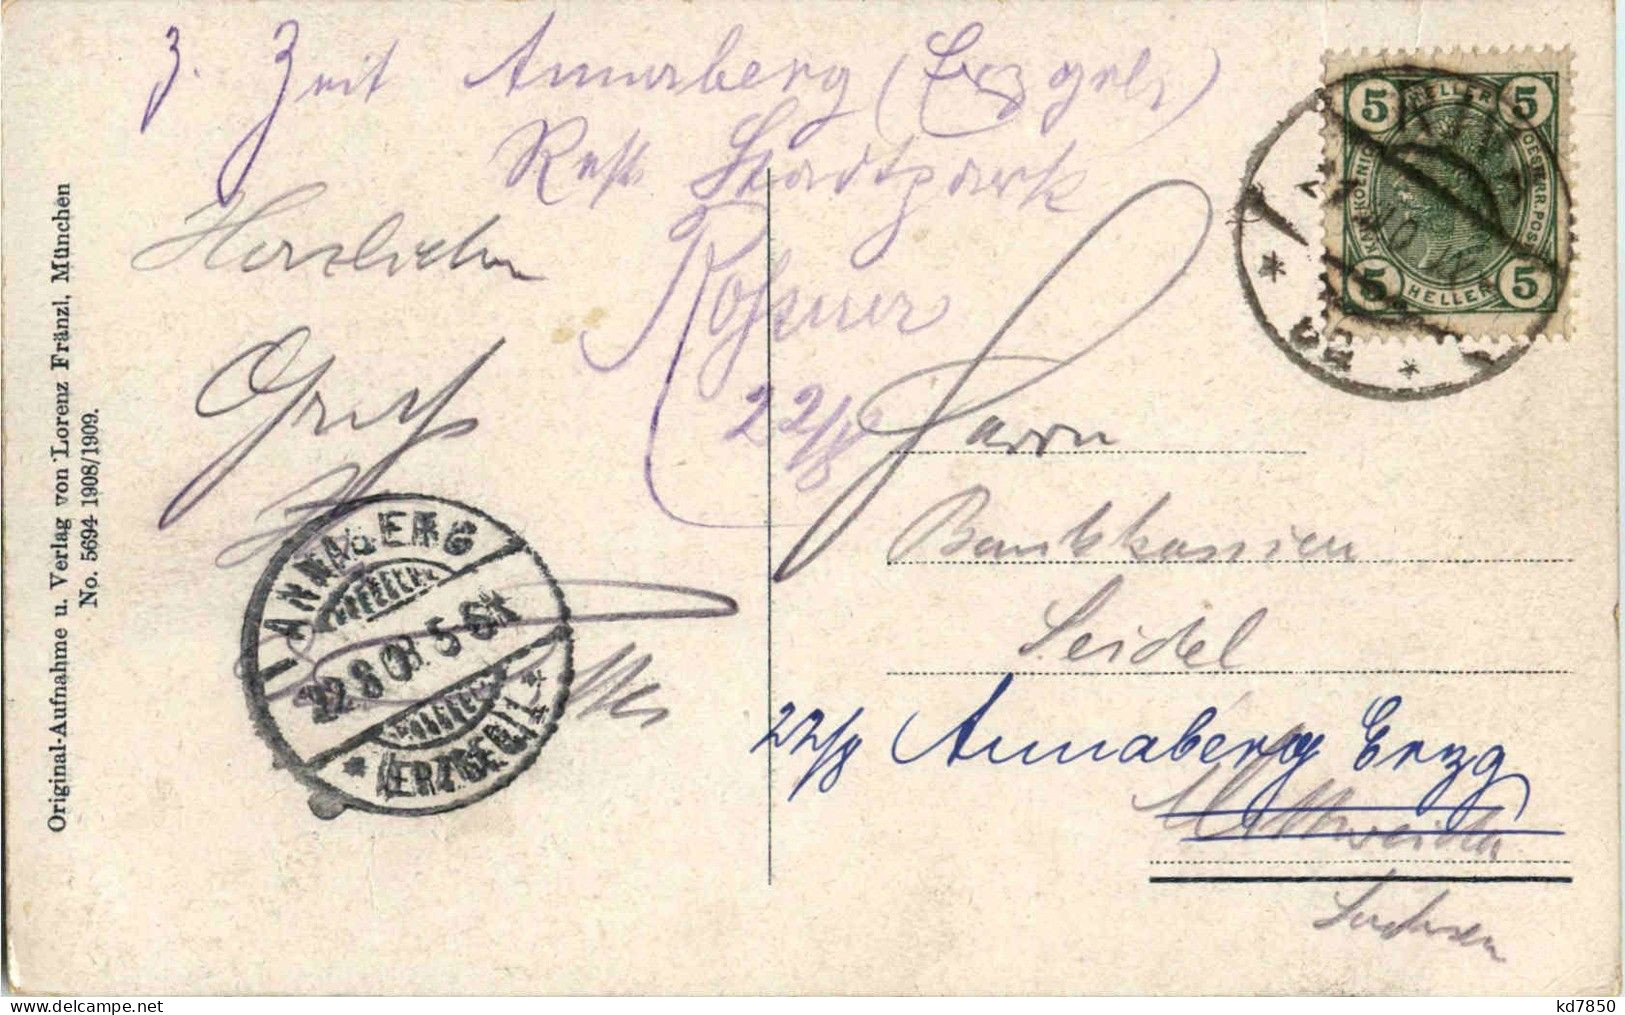 z. Zeit Annaberg (Erzgeb.)
Rest. Stadtpark
Herzlichen
Gruß
22/8
Herrn
Bankkassier
Seidel
22/8 Annaberg Erzg
Mittweida
Sachsen
5 HELLER 5
KAIS. KOENIG. OESTERR. POST
5 HELLER 5
ANNABERG
22.8.08. 5-6N
* (ERZGEB.) *
Original-Aufnahme u. Verlag von Lorenz Fränzl, München
No. 5694 1908/1909.
kd7850